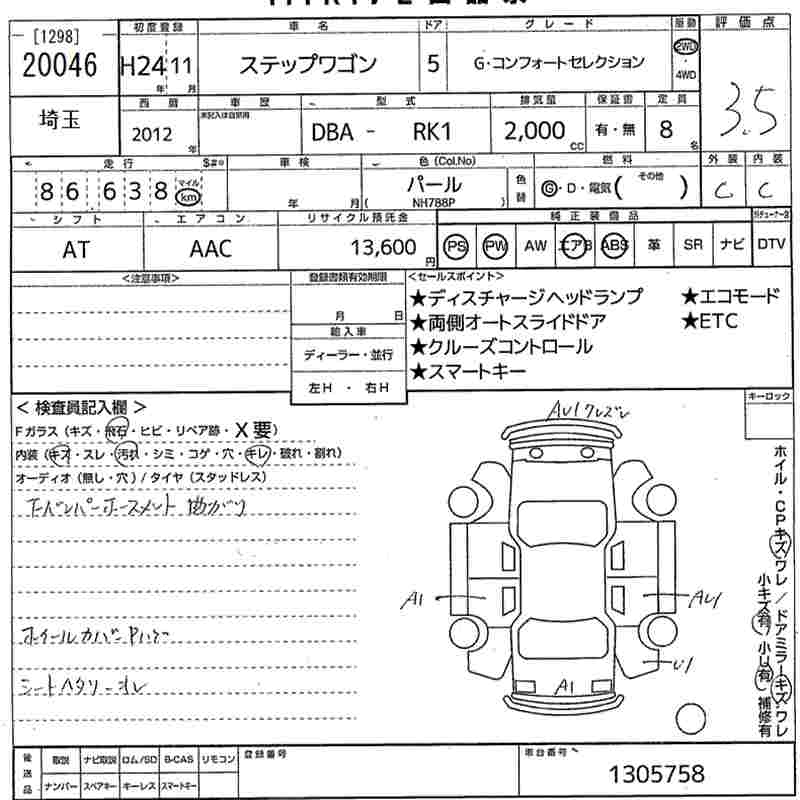 [1298]
20046
初度登録
H24 11
年 月
車名
ステップワゴン
ドア
5
グレード
G・コンフォートセレクション
駆動
2WD
・
4WD
評価点
3.5
埼玉
西暦
2012
年
車歴
未記入は自家用
型式
DBA - RK1
排気量
2,000
CC
保証書
有・無
定員
8
名
走行
$#*
86,638
マイル
km
車検
年 月
色(Col.No)
パール
( NH788P )
色替
燃料
G・D・電気( その他 )
外装
C
内装
C
シフト
AT
エアコン
AAC
リサイクル預託金
13,600
円
純正装備品
PS PW AW エアB ABS 革 SR ナビ
DTV
<注意事項>
登録書類有効期限
月 日
輸入車
ディーラー・並行
左H ・ 右H
<セールスポイント>
★ディスチャージヘッドランプ ★エコモード
★両側オートスライドドア ★ETC
★クルーズコントロール
★スマートキー
キーロック
< 検査員記入欄 >
Fガラス (キズ・飛石・ヒビ・リペア跡・X要)
内装 (キズ・スレ・汚れ・シミ・コゲ・穴・キレ・破れ・割れ)
オーディオ (無し・穴) / タイヤ (スタッドレス)
曲がり
ホイールカバー
シートヘタリ
A1
AU1
U1
A1
ホイル・CPキズワレ/ドアミラーキズワレ
小キズ有/小U有/補修有
後送品
取説 ナビ取説 ロム/SD B-CAS リモコン
ナンバー スペアキー キーレス スマートキー
登録番号
車台番号
1305758